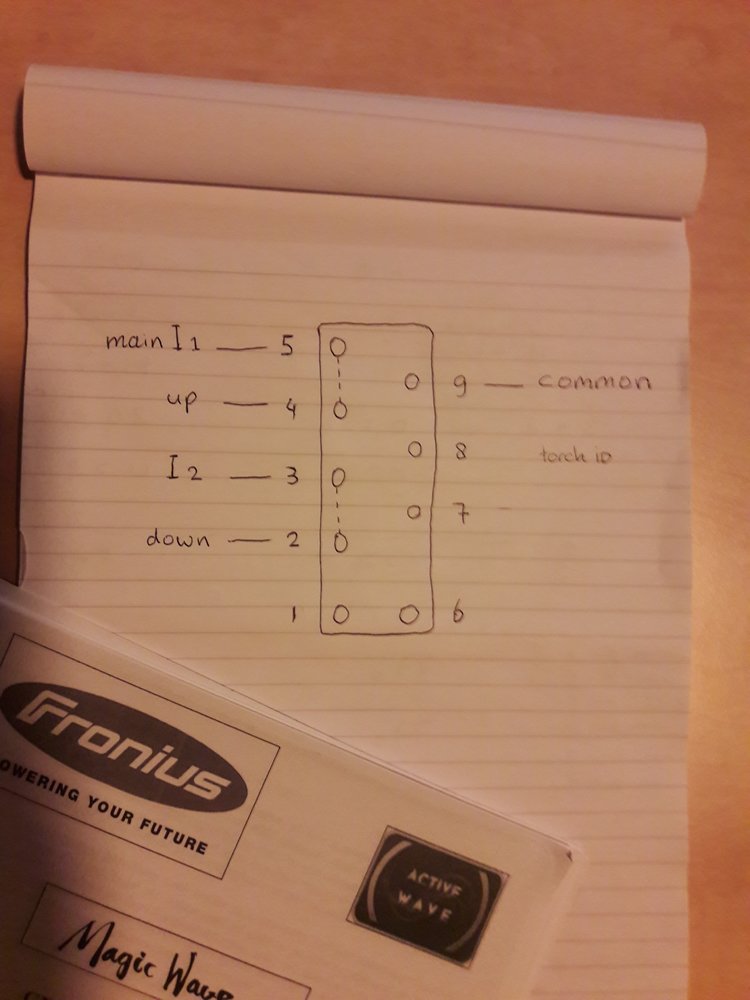 main I1 — 5
9 — common
up — 4
8 torch ID
I2 — 3
7
down — 2
1
6
Fronius
OWERING YOUR FUTURE
ACTIVE
WAVE
Magic Wave